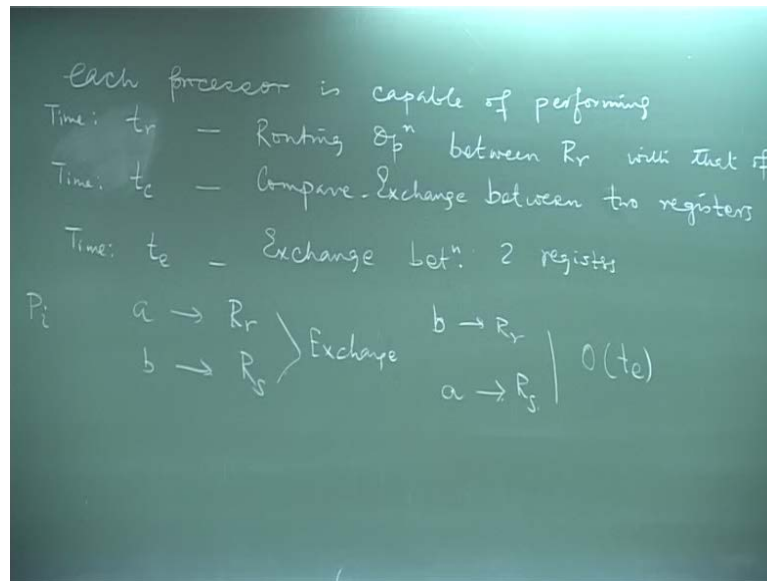 each processor is capable of performing
Time: tr — Routing Opⁿ between Rr with that of
Time: tc — Compare-Exchange between two registers
Time: te — Exchange betⁿ. 2 registers
Pi a → Rr b → Rr
Exchange O(te)
b → Rs a → Rs